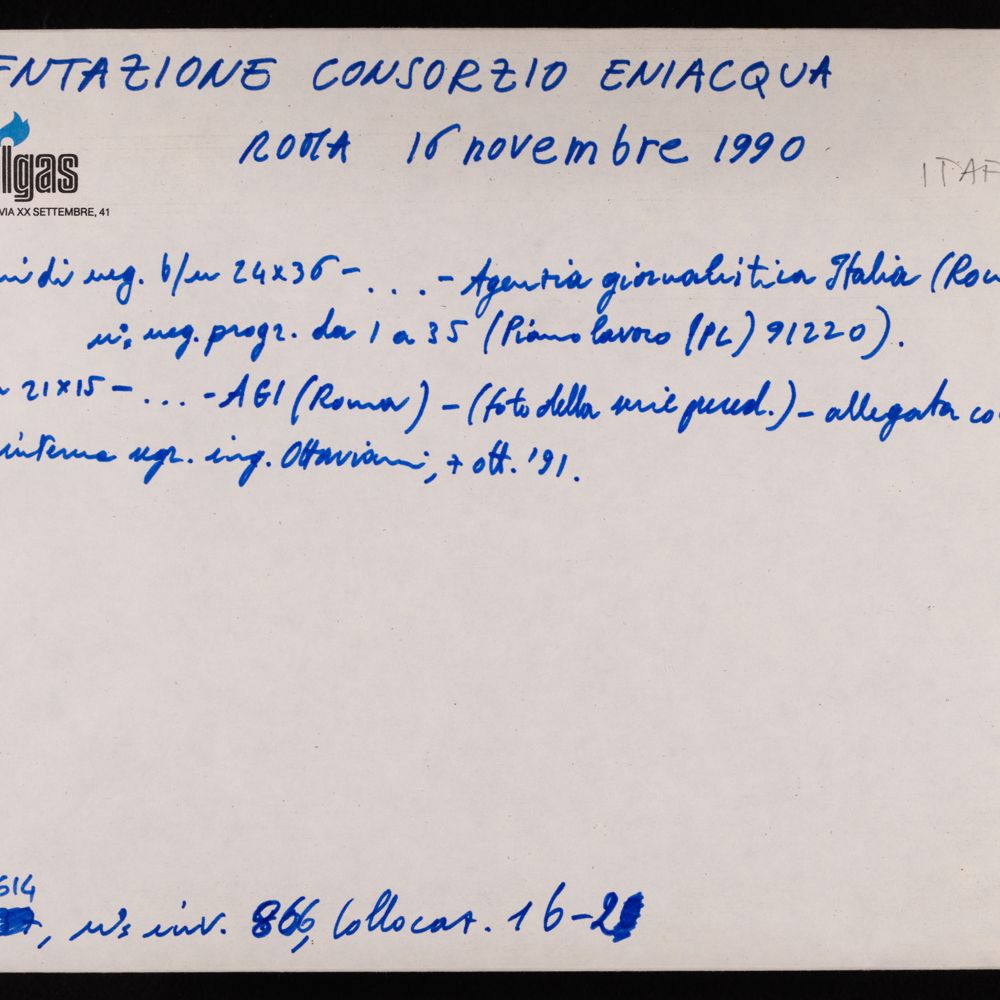 ENTAZIONE CONSORZIO ENIACQUA
ROMA 16 novembre 1990
lgas
VIA XX SETTEMBRE, 41
ITAF
di neg. b/n 24x36 - ... - Agenzia giornalistica Italia (Rom
n; neg. progr. da 1 a 35 (Piano lavoro (PL) 91220).
21x15 - ... - AGI (Roma) - (foto della serie preced.) - allegata co
interna segr. ing. Ottaviani, 7 ott. '91.
614
n; inv. 866, Collocaz. 16-2